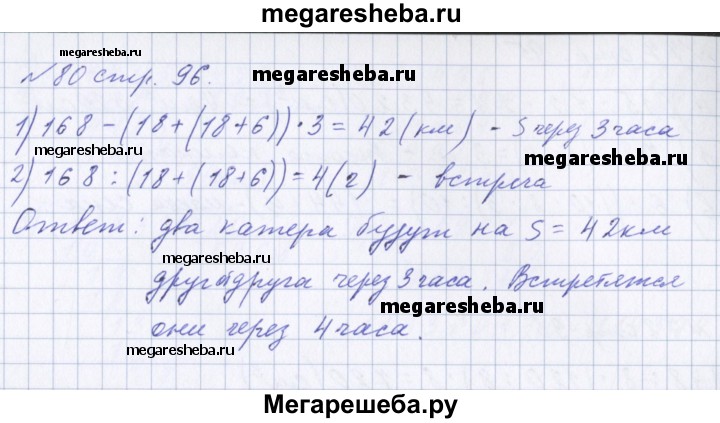 megaresheba.ru
megaresheba.ru
№80 стр. 96.
megaresheba.ru
1) 168 - (18 + (18 + 6)) · 3 = 42 (км) - S через 3 часа
megaresheba.ru
megaresheba.ru
2) 168 : (18 + (18 + 6)) = 4 (ч) - встреча
Ответ: два катера будут на S = 42 км
megaresheba.ru
друг от друга через 3 часа. Встретятся
megaresheba.ru
они через 4 часа.
megaresheba.ru
Мегарешеба.ру